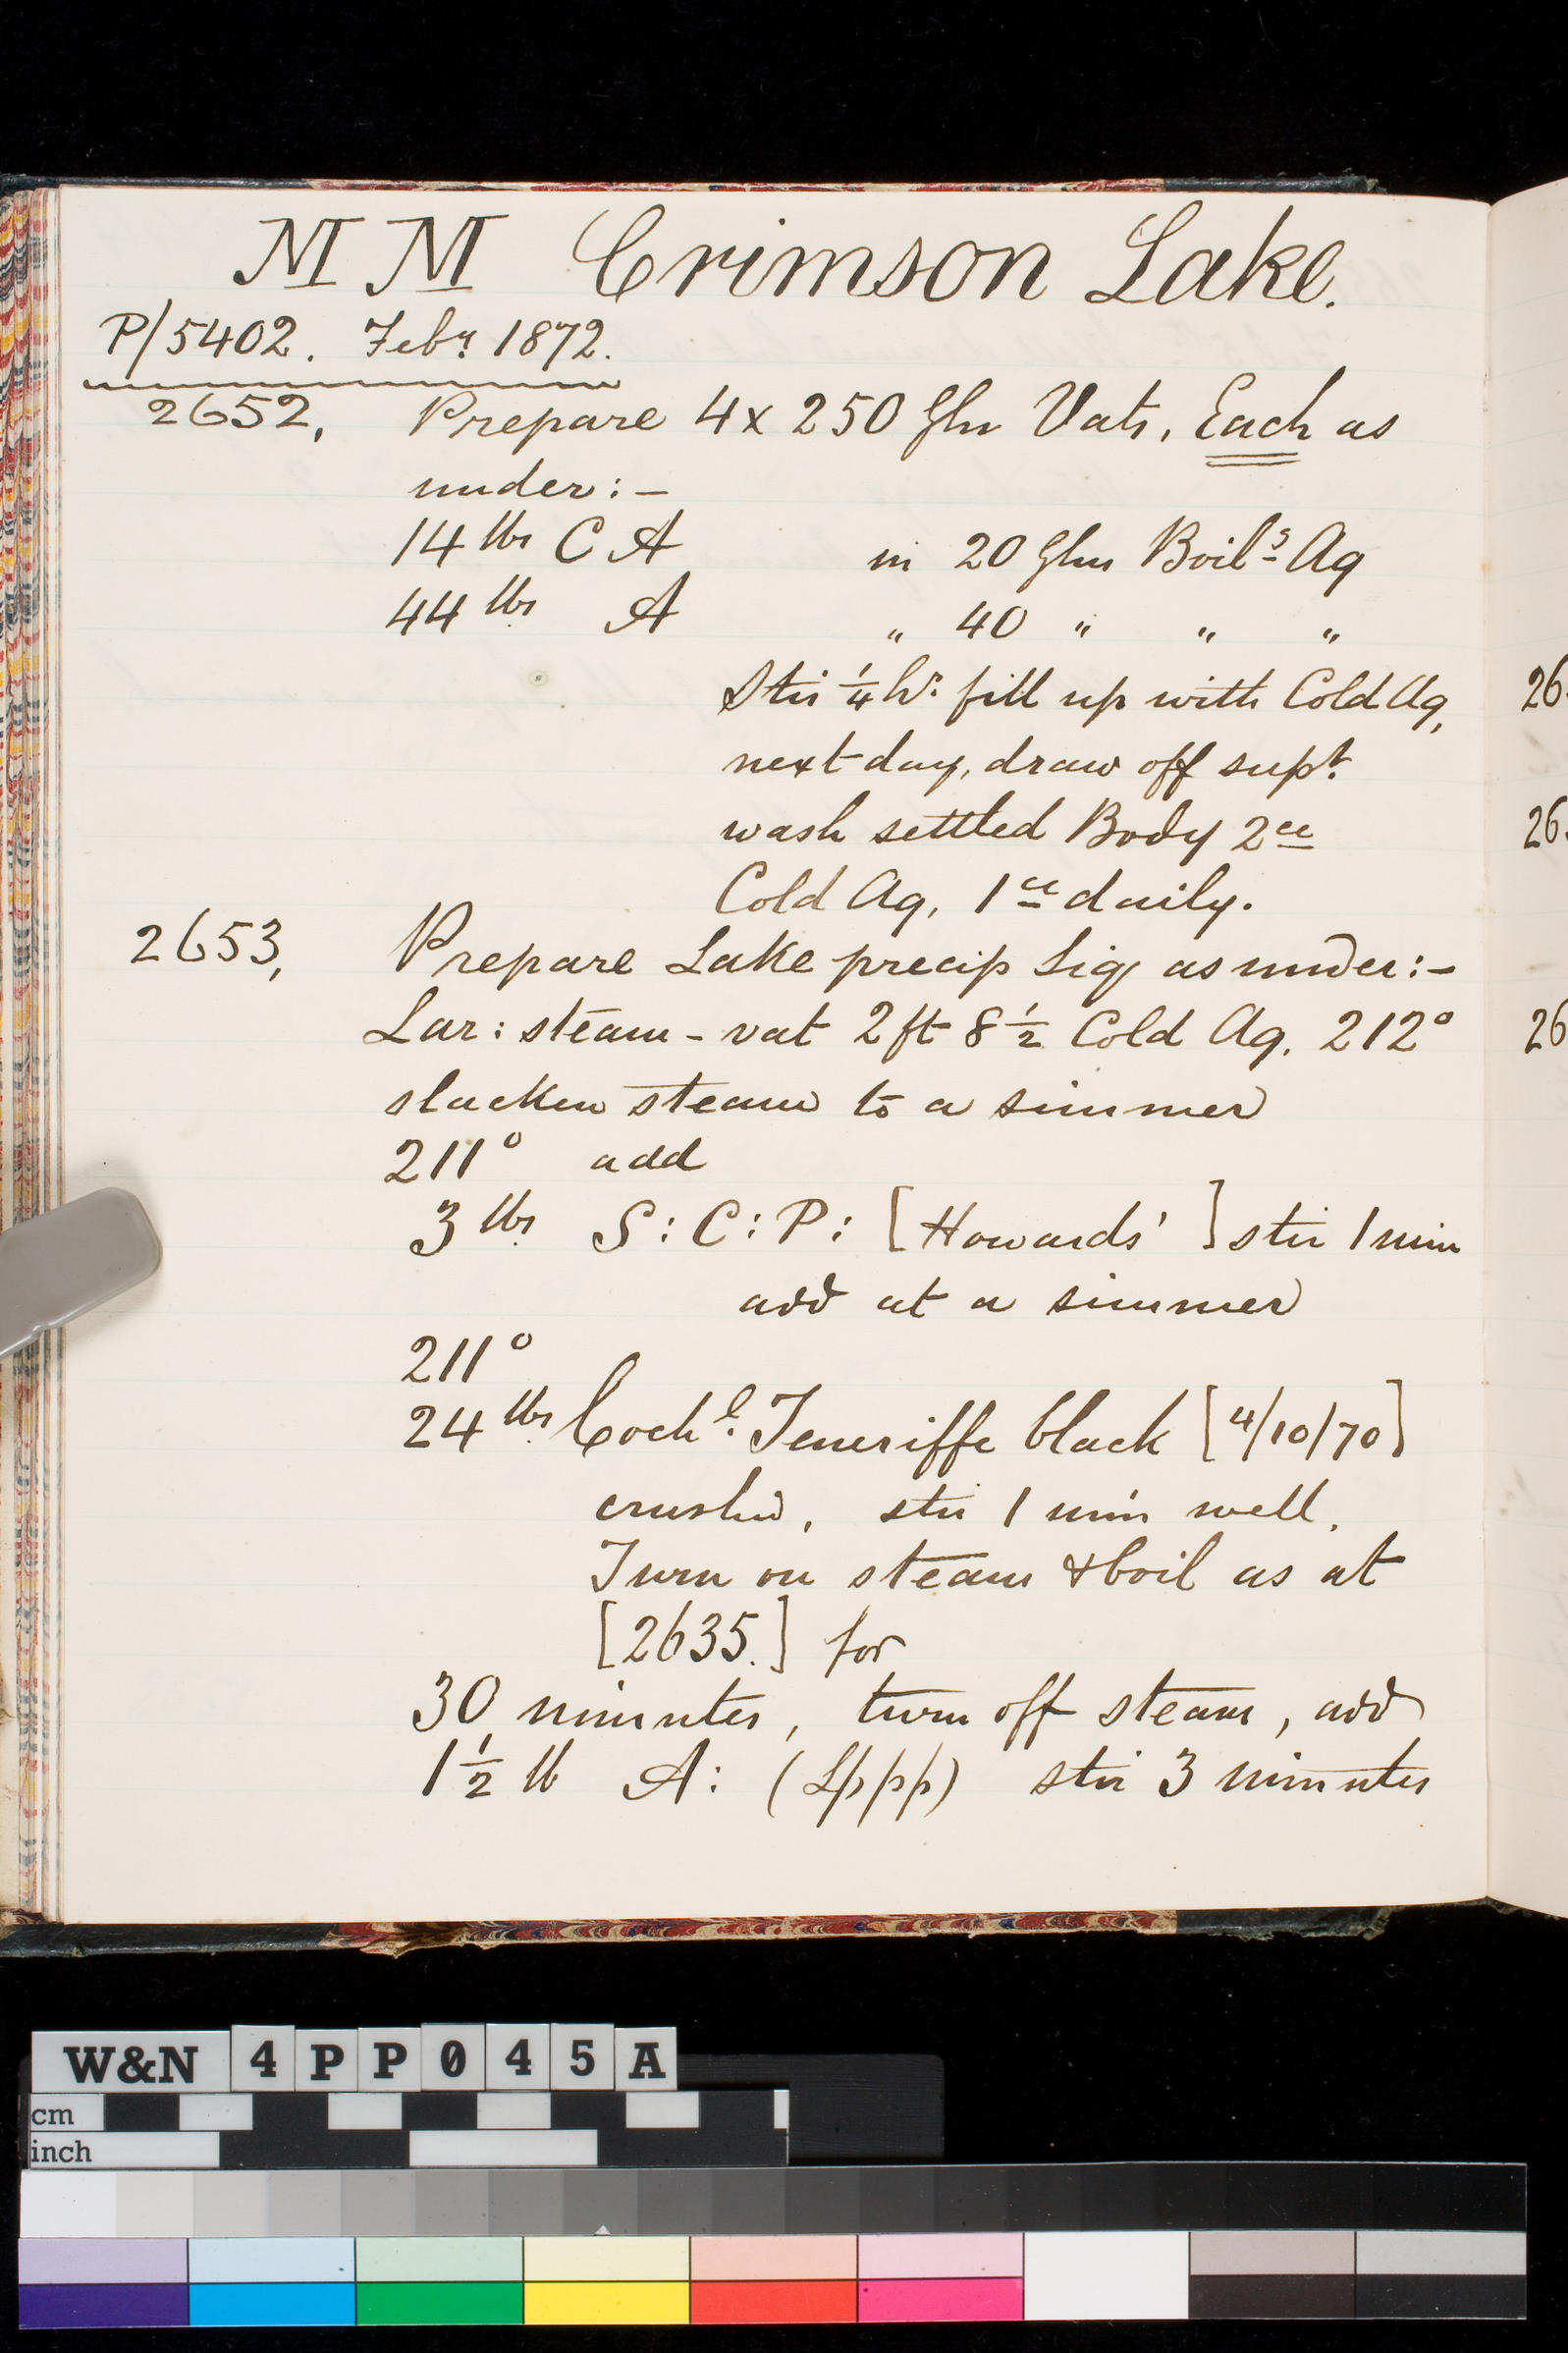 MM Crimson Lake.
P/5402. Feby 1872.
2652, Prepare 4 x 250 Glns Vats, Each as
under:-
14 lbs C A in 20 Glns Boilg Aq
44 lbs A " 40 " " "
Stir 1/4 hr. fill up with Cold Aq,
next day, draw off supt.
wash settled Body 2ce
Cold Aq, 1ce daily.
2653, Prepare Lake precip Liq as under:-
Lar: steam-vat 2ft 8 1/2 Cold Aq. 212°
slacken steam to a simmer
211° add
3 lbs S: C: P: [Howards'] stir 1 min
add at a simmer
211°
24 lbs Cochl. Teneriffe black [4/10/70]
crush'd, stir 1 min well.
Turn on steam & boil as at
[2635.] for
30 minutes, turn off steam, add
1 1/2 lb A: (Lppp) stir 3 minutes
26
26
26
W&N 4PP045A
cm
inch